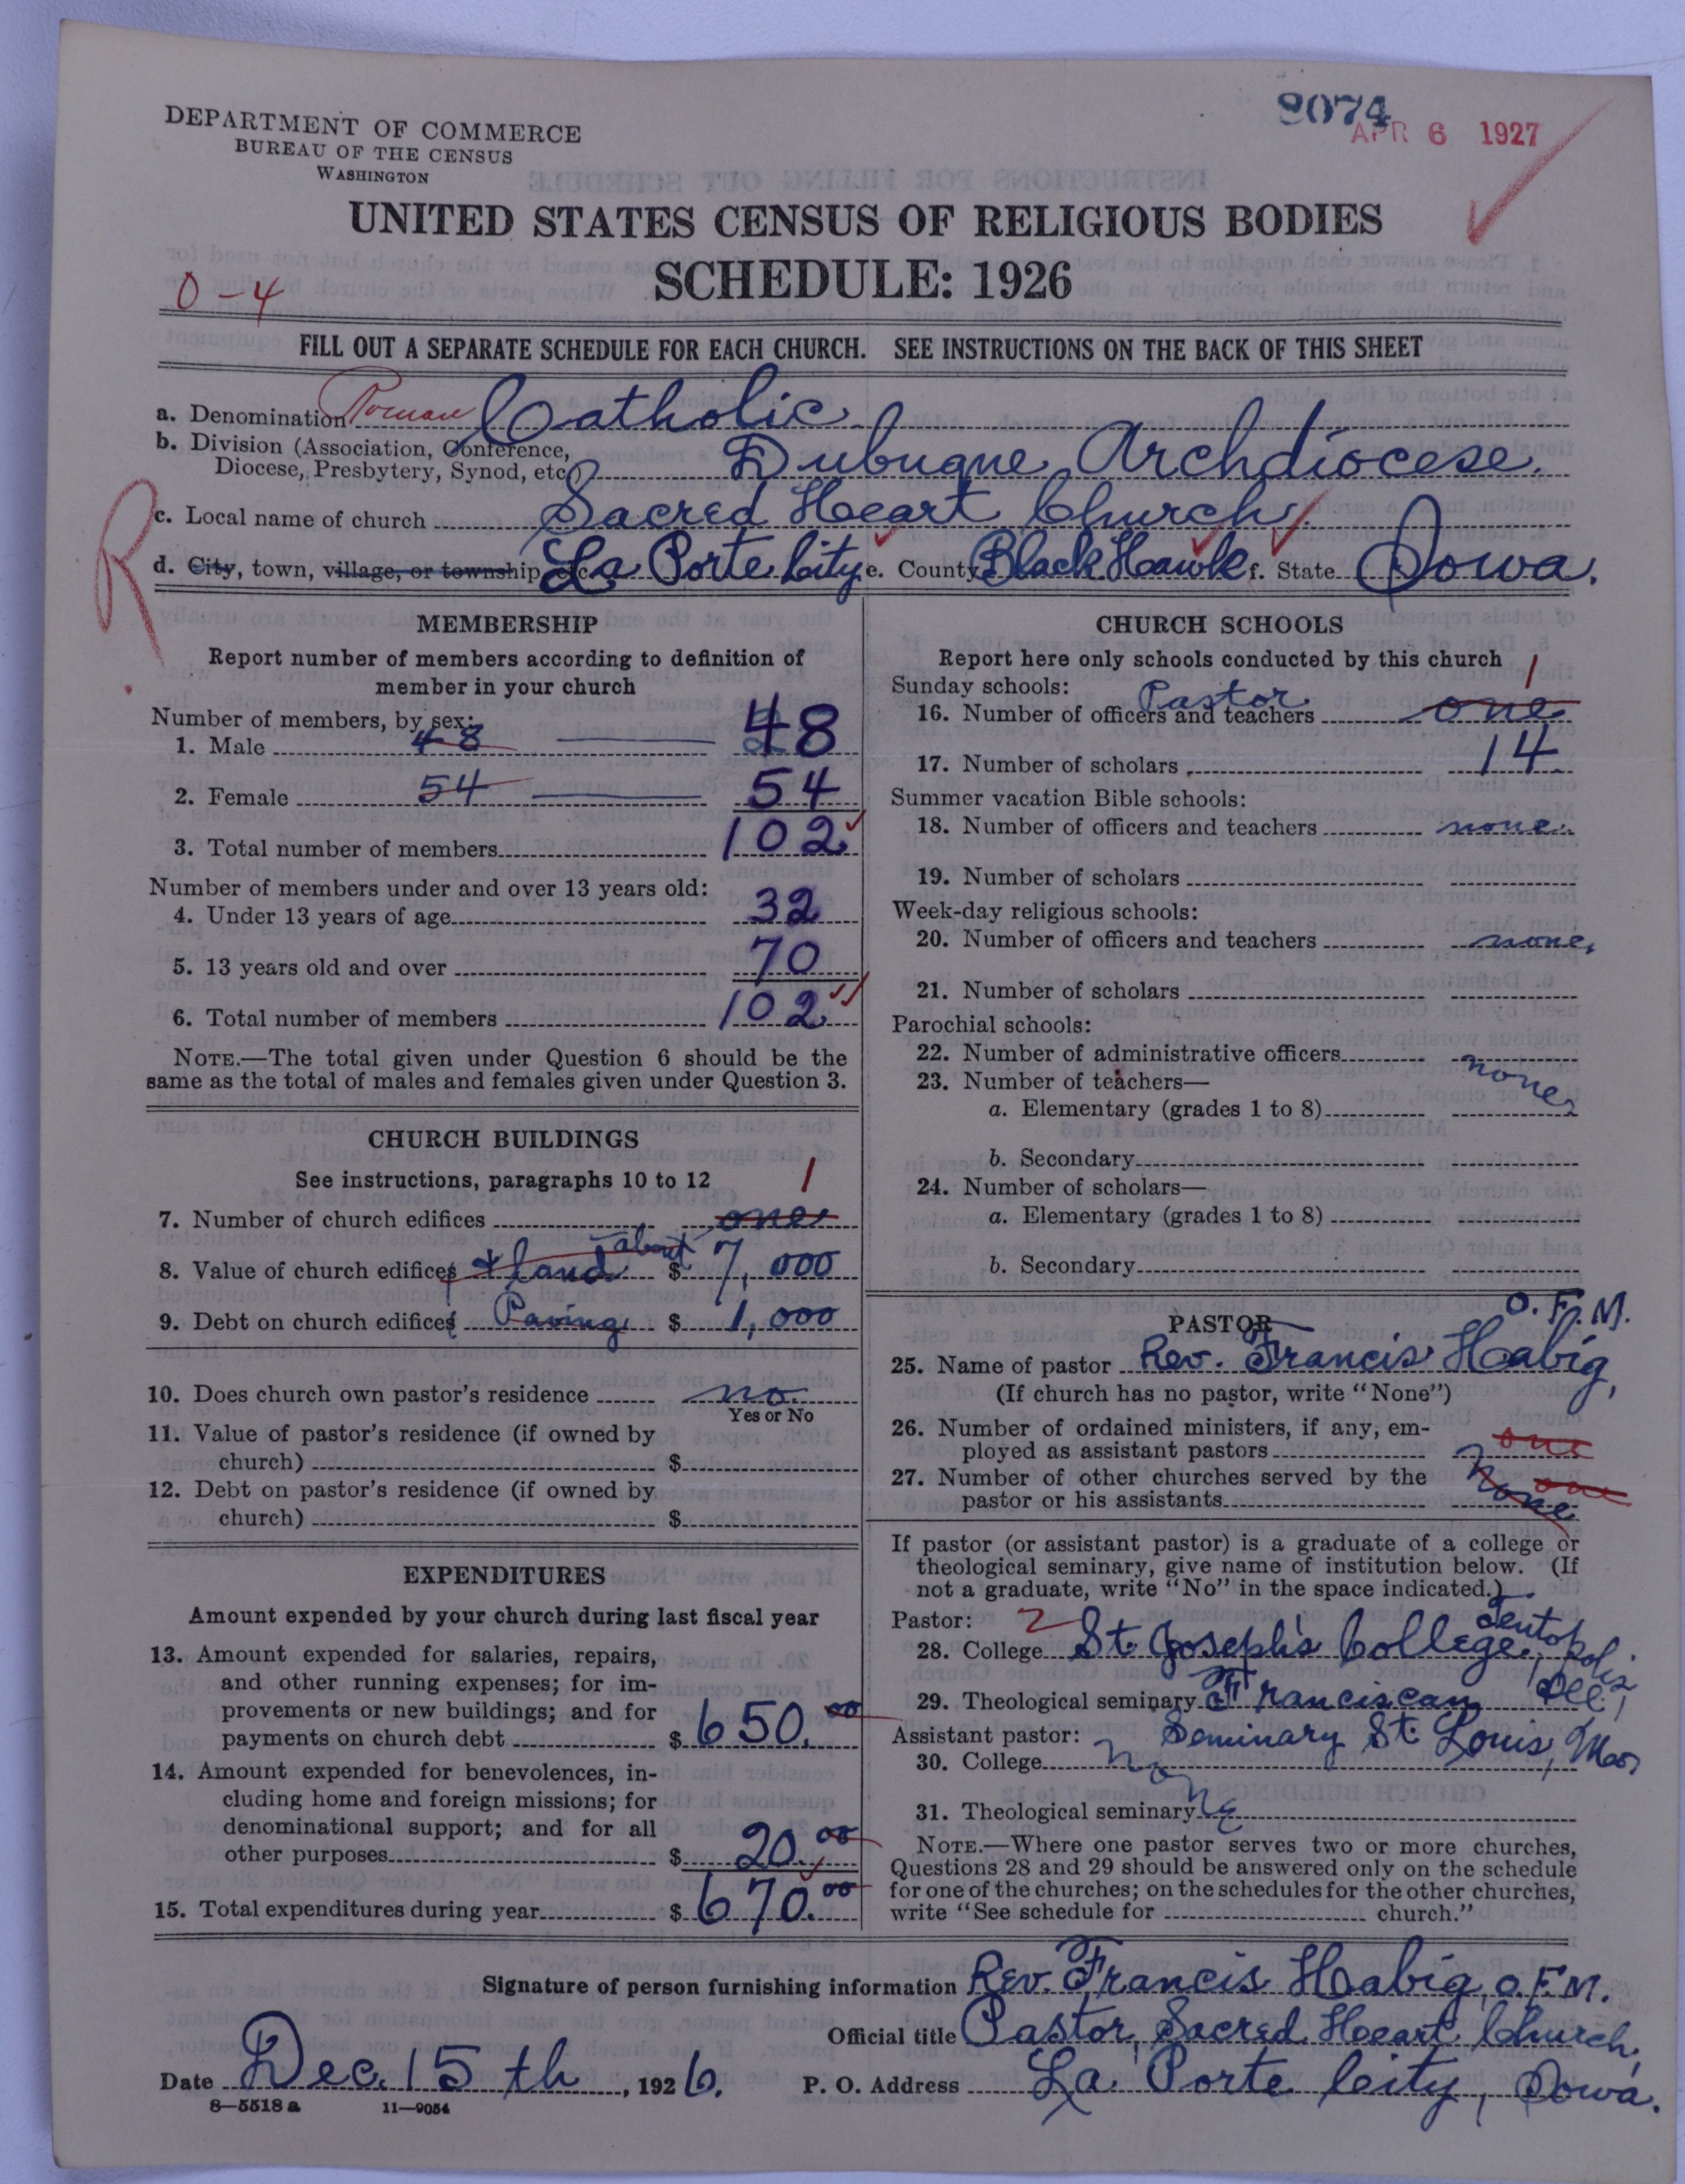 9074
APR 6 1927
DEPARTMENT OF COMMERCE
BUREAU OF THE CENSUS
WASHINGTON
UNITED STATES CENSUS OF RELIGIOUS BODIES
SCHEDULE: 1926
0-4
FILL OUT A SEPARATE SCHEDULE FOR EACH CHURCH. SEE INSTRUCTIONS ON THE BACK OF THIS SHEET
a. Denomination Roman Catholic
b. Division (Association, Conference,
Diocese, Presbytery, Synod, etc.) Dubuque Archdiocese.
c. Local name of church Sacred Heart Church
R
d. City, town, village, or township, etc. La Porte City e. County Black Hawk f. State Iowa.
MEMBERSHIP
Report number of members according to definition of
member in your church
Number of members, by sex:
1. Male 48 48
2. Female 54 54
3. Total number of members 102
Number of members under and over 13 years old:
4. Under 13 years of age 32
5. 13 years old and over 70
6. Total number of members 102
NOTE.—The total given under Question 6 should be the
same as the total of males and females given under Question 3.
CHURCH BUILDINGS
See instructions, paragraphs 10 to 12
1
7. Number of church edifices one
8. Value of church edifices + land about $ 7,000
9. Debt on church edifices Paving $ 1,000
10. Does church own pastor's residence no.
Yes or No
11. Value of pastor's residence (if owned by
church) $
12. Debt on pastor's residence (if owned by
church) $
EXPENDITURES
Amount expended by your church during last fiscal year
13. Amount expended for salaries, repairs,
and other running expenses; for im-
provements or new buildings; and for
payments on church debt $ 650.00
14. Amount expended for benevolences, in-
cluding home and foreign missions; for
denominational support; and for all
other purposes $ 20.00
15. Total expenditures during year $ 670.00
CHURCH SCHOOLS
Report here only schools conducted by this church
Sunday schools: Pastor 1
16. Number of officers and teachers one
17. Number of scholars 14
Summer vacation Bible schools:
18. Number of officers and teachers none.
19. Number of scholars
Week-day religious schools:
20. Number of officers and teachers none,
21. Number of scholars
Parochial schools:
22. Number of administrative officers
none,
23. Number of teachers—
a. Elementary (grades 1 to 8)
b. Secondary
24. Number of scholars—
a. Elementary (grades 1 to 8)
b. Secondary
PASTOR
O.F.M.
25. Name of pastor Rev. Francis Habig,
(If church has no pastor, write "None")
26. Number of ordained ministers, if any, em-
ployed as assistant pastors one
27. Number of other churches served by the
pastor or his assistants None one
If pastor (or assistant pastor) is a graduate of a college or
theological seminary, give name of institution below. (If
not a graduate, write "No" in the space indicated.)
Pastor: 2
28. College St. Joseph's College, Teutopolis
Ill,
29. Theological seminary Franciscan
Seminary St. Louis, Mo,
Assistant pastor:
30. College None
31. Theological seminary
NOTE.—Where one pastor serves two or more churches,
Questions 28 and 29 should be answered only on the schedule
for one of the churches; on the schedules for the other churches,
write "See schedule for church."
Signature of person furnishing information Rev. Francis Habig, O.F.M.
Official title Pastor, Sacred Heart Church,
Date Dec. 15th, 1926. P. O. Address La Porte City, Iowa.
8—5518 a 11—9054